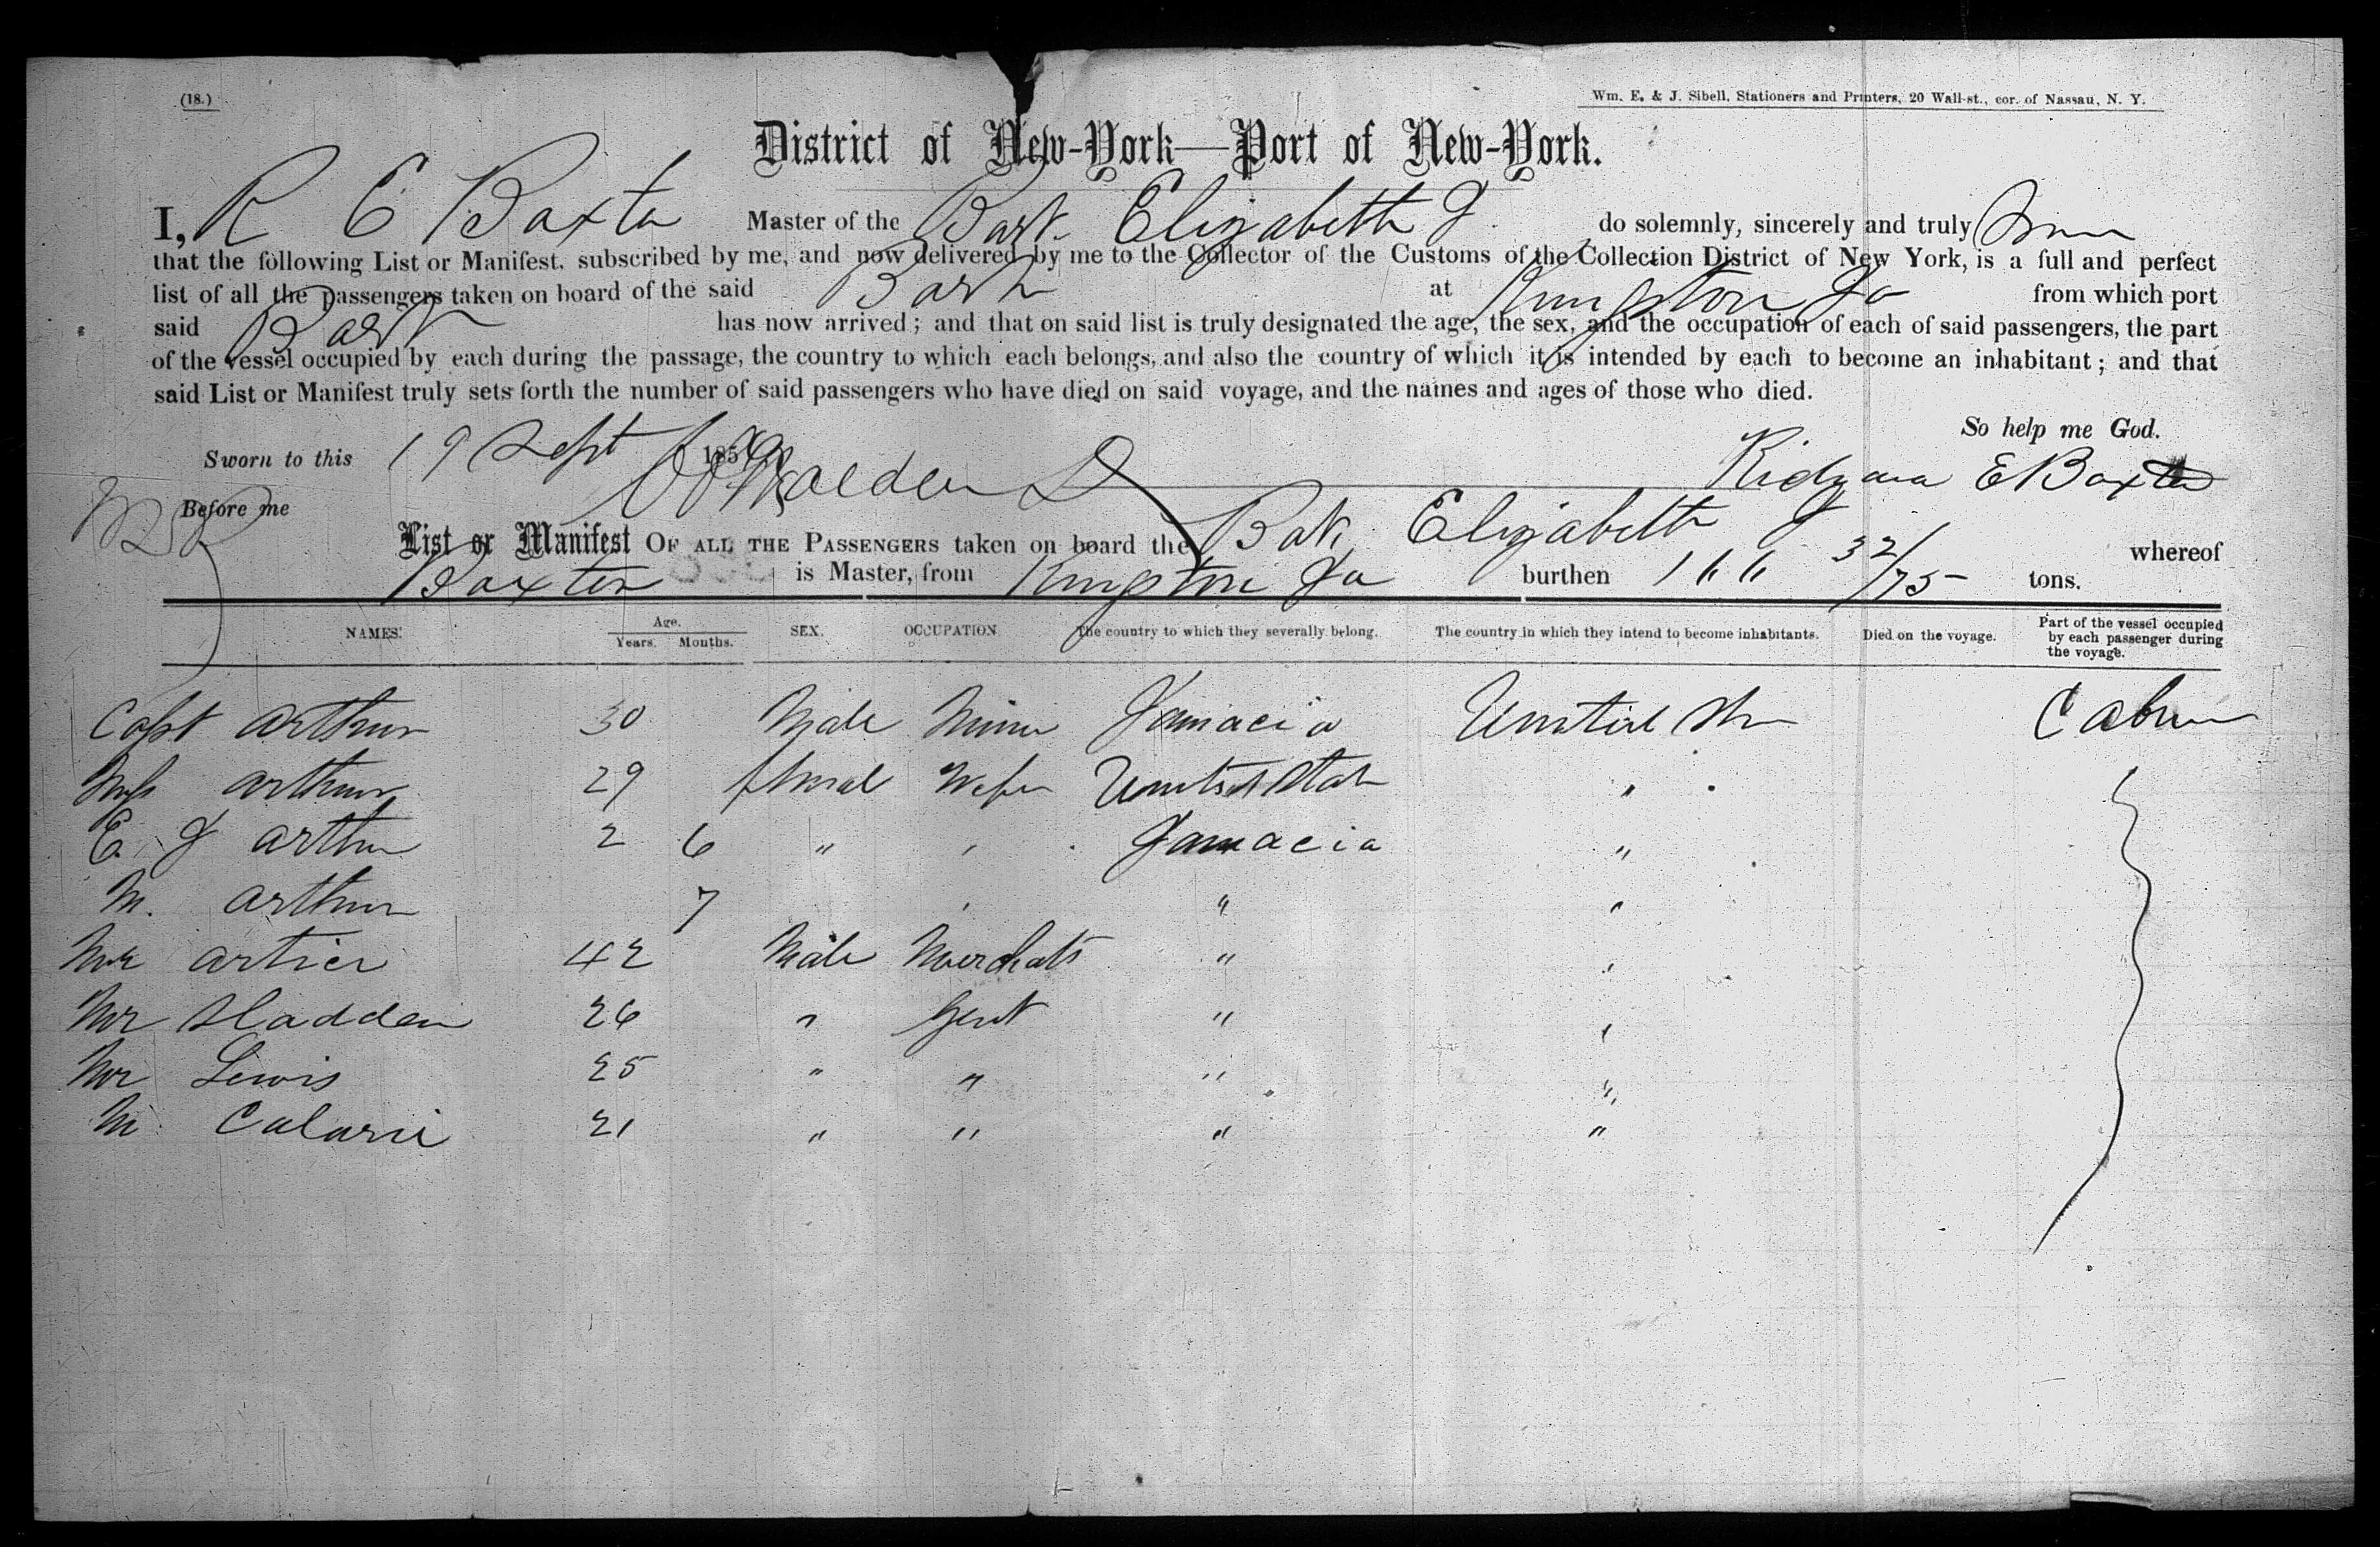 (18.)
Wm. E. & J. Sibell, Stationers and Printers, 20 Wall-st., cor. of Nassau, N. Y.
District of New-York—Port of New-York.
I, R E Baxter Master of the Bark Elizabeth J do solemnly, sincerely and truly
that the following List or Manifest, subscribed by me, and now delivered by me to the Collector of the Customs of the Collection District of New York, is a full and perfect
list of all the passengers taken on board of the said Bark at Kingston Ja from which port
said Bark has now arrived; and that on said list is truly designated the age, the sex, and the occupation of each of said passengers, the part
of the vessel occupied by each during the passage, the country to which each belongs, and also the country of which it is intended by each to become an inhabitant; and that
said List or Manifest truly sets forth the number of said passengers who have died on said voyage, and the names and ages of those who died.
So help me God.
Sworn to this 19 Sept 185
E Baxter
Before me
List or Manifest OF ALL THE PASSENGERS taken on board the Bark Elizabeth J whereof
Baxter is Master, from Kingston Ja burthen 166 32/75 tons.
NAMES. Age. Years. Months. SEX. OCCUPATION The country to which they severally belong. The country in which they intend to become inhabitants. Died on the voyage. Part of the vessel occupied by each passenger during the voyage.
Capt Arthur 30 Male Jamacia Cabin
Arthur 29 United Stat " "
E. J Arthur 2 6 " " Jamacia "
M. Arthur 7 " " "
Mr Artier 42 Male Merchats " "
Mr Hadden 26 " Gent " "
Mr Lewis 25 " " " "
M Calarii 21 " " " "